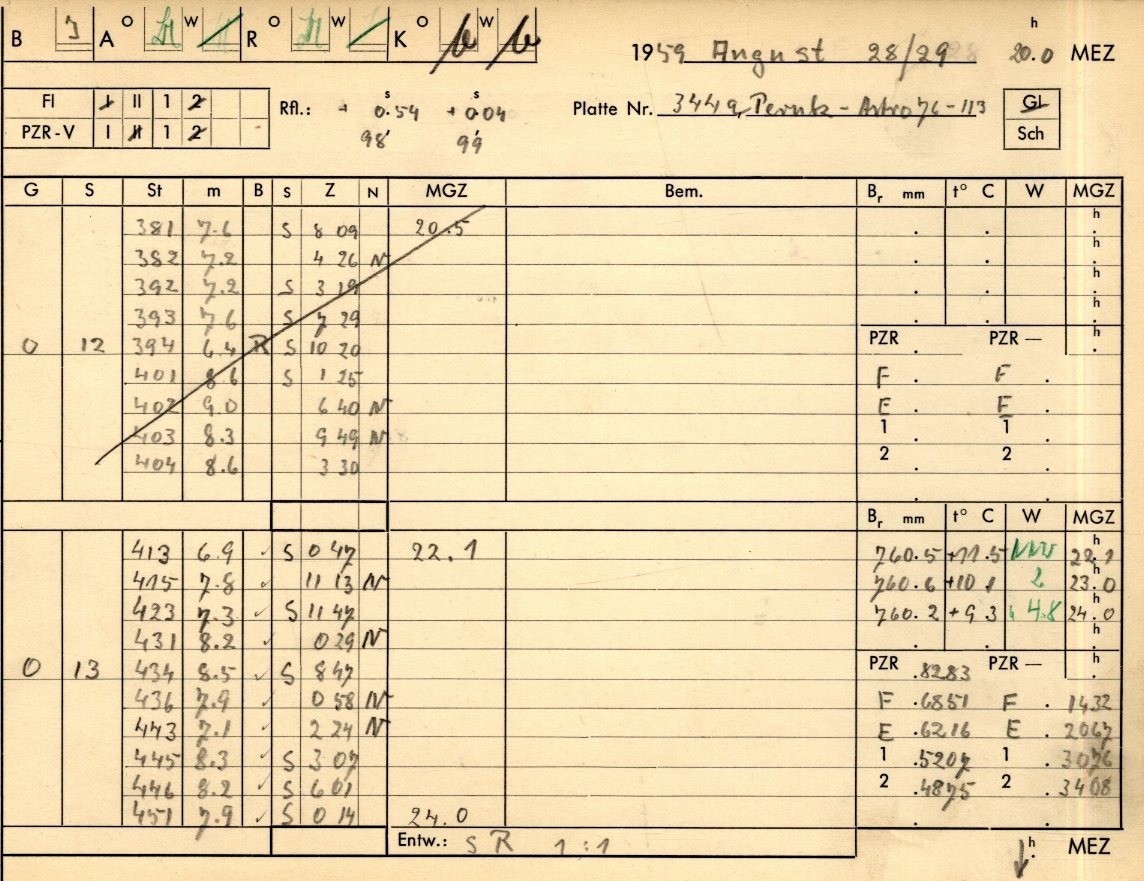 B J A O W R O W K O W
1959 August 28/29 20.0 h MEZ
Fl I II 1 2
PZR-V I II 1 2
Rfl.: + 0.54 s + 0.04 s
98' 99'
Platte Nr. 3449, Pernk-Astro 76-113
Gl
Sch
G S St m B S Z N MGZ Bem. Br mm t° C W MGZ
381 7.6 S 8 09 20.5 h
382 7.2 4 26 N h
392 7.2 S 3 19 h
393 7.6 S 7 29 h
0 12 394 6.4 R S 10 20 PZR PZR — h
401 8.6 S 1 25 F F
402 9.0 6 40 N E E
403 8.3 9 49 N 1 1
404 8.6 3 30 2 2
Br mm t° C W MGZ
413 6.9 ✓ S 0 47 22.1 760.5 +11.5 NNW 22.1 h
415 7.8 ✓ 11 13 N 760.6 +10 1 2 23.0 h
423 7.3 ✓ S 11 47 760.2 +9 3 4.8 24.0 h
431 8.2 ✓ 0 29 N h
0 13 434 8.5 ✓ S 8 47 PZR .8283 PZR — h
436 7.9 ✓ 0 58 N F .6851 F .1432
443 7.1 ✓ 2 24 N E .6216 E .2067
445 8.3 ✓ S 3 07 1 .5207 1 .3076
446 8.2 ✓ S 6 01 2 .4875 2 .3408
451 7.9 ✓ S 0 14 24.0
Entw.: S R 1:1 h MEZ